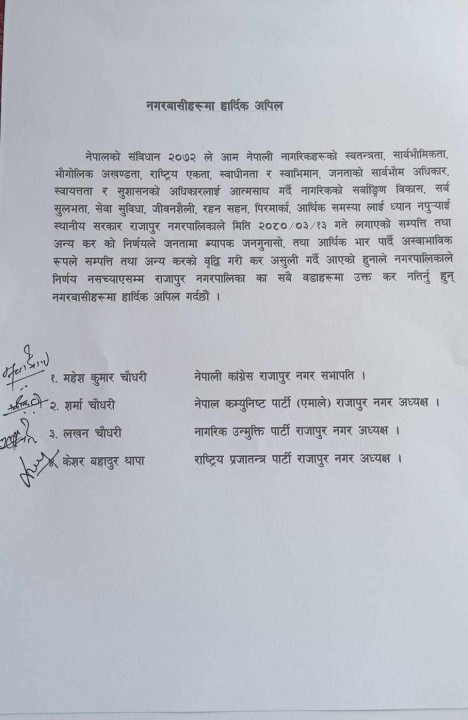 नगरबासीहरूमा हार्दिक अपिल
नेपालको संविधान २०७२ ले आम नेपाली नागरिकहरूको स्वतन्त्रता, सार्वभौमिकता,
भौगोलिक अखण्डता, राष्ट्रिय एकता, स्वाधीनता र स्वाभिमान, जनताको सार्वभौम अधिकार,
स्वायत्तता र सुशासनको अधिकारलाई आत्मसाथ गर्दै नागरिकको सर्वाङ्गिण विकास, सर्व
सुलभता, सेवा सुविधा, जीवनशैली, रहन सहन, पिरमार्का, आर्थिक समस्या लाई ध्यान नपुर्‍याई
स्थानीय सरकार राजापुर नगरपालिकाले मिति २०८०/०३/१३ गते लगाएको सम्पत्ति तथा
अन्य कर को निर्णयले जनतामा ब्यापक जनगुनासो, तथा आर्थिक भार पार्दै अस्वाभाविक
रूपले सम्पत्ति तथा अन्य करको वृद्धि गरी कर असुली गर्दै आएको हुनाले नगरपालिकाले
निर्णय नसच्याएसम्म राजापुर नगरपालिका का सबै वडाहरूमा उक्त कर नतिर्नु हुन्
नगरबासीहरूमा हार्दिक अपिल गर्दछौ ।
१. महेश कुमार चौधरी नेपाली कांग्रेस राजापुर नगर सभापति ।
२. शर्मा चौधरी नेपाल कम्युनिष्ट पार्टी (एमाले) राजापुर नगर अध्यक्ष ।
३. लखन चौधरी नागरिक उन्मुक्ति पार्टी राजापुर नगर अध्यक्ष ।
केशर बहादुर थापा राष्ट्रिय प्रजातन्त्र पार्टी राजापुर नगर अध्यक्ष ।